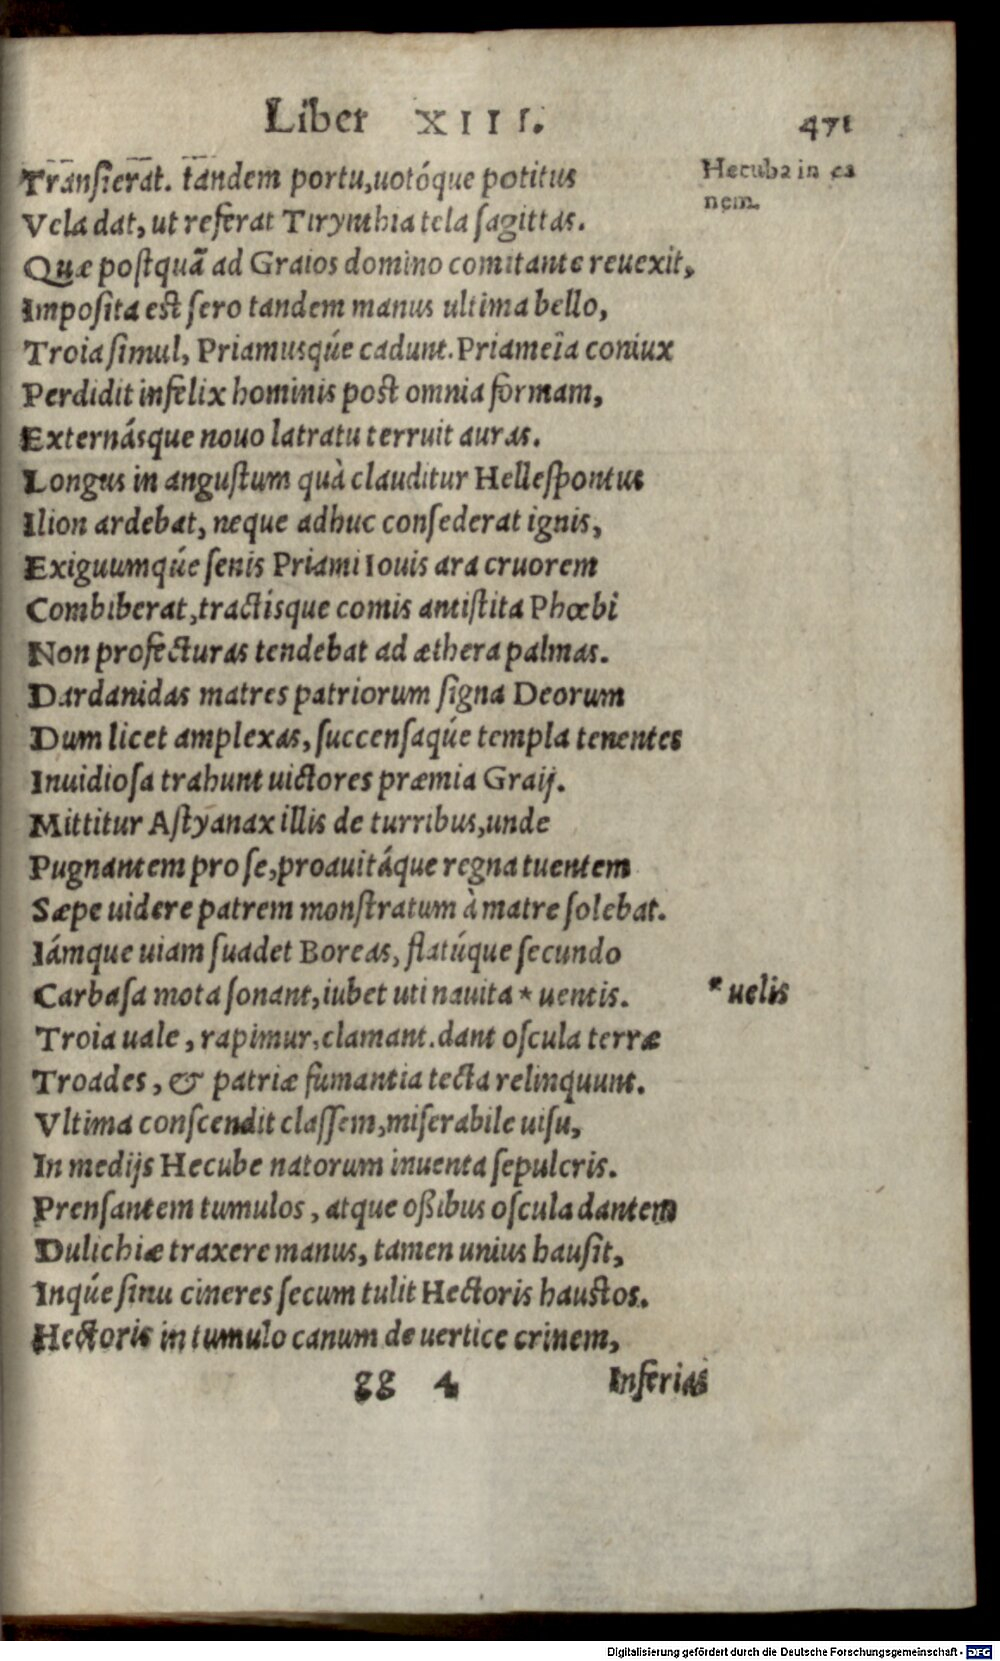 Liber XIII. 471
Transierat. tandem portu,uotóque potitus
Hecuba in ca
nem.
Vela dat, ut referat Tirynthia tela sagittas.
Quæ postquã ad Graios domino comitante reuexit,
Imposita est sero tandem manus ultima bello,
Troia simul, Priamusq́ue cadunt. Priameïa coniux
Perdidit infelix hominis post omnia formam,
Externásque nouo latratu terruit auras.
Longus in angustum quà clauditur Hellespontus
Ilion ardebat, neque adhuc consederat ignis,
Exiguumq́ue senis Priami Iouis ara cruorem
Combiberat,tractisque comis antistita Phœbi
Non profecturas tendebat ad æthera palmas.
Dardanidas matres patriorum signa Deorum
Dum licet amplexas, succensaq́ue templa tenentes
Inuidiosa trahunt uictores præmia Graij.
Mittitur Astyanax illis de turribus,unde
Pugnantem pro se,proauitáque regna tuentem
Sæpe uidere patrem monstratum à matre solebat.
Iámque uiam suadet Boreas, flatúque secundo
Carbasa mota sonant,iubet uti nauita * uentis.
* uelis
Troia uale, rapimur,clamant.dant oscula terræ
Troades, & patriæ fumantia tecta relinquunt.
Vltima conscendit classem,miserabile uisu,
In medijs Hecube natorum inuenta sepulcris.
Prensantem tumulos, atque oßibus oscula dantem
Dulichiæ traxere manus, tamen unius hausit,
Inq́ue sinu cineres secum tulit Hectoris haustos.
Hectoris in tumulo canum de uertice crinem,
gg 4 Inferias
Digitalisierung gefördert durch die Deutsche Forschungsgemeinschaft - DFG